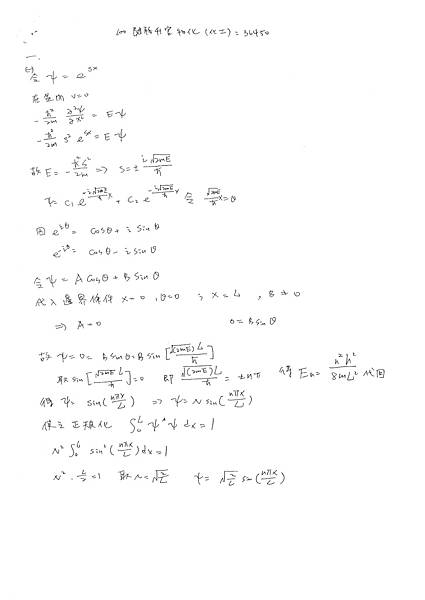 一.
(一)
令 ψ = e^{sx}
在盒內 V=0
-ħ²/2m ∂²ψ/∂x² = Eψ
-ħ²/2m s² e^{sx} = Eψ
故 E = -ħ²s²/2m => s = ± i√2mE/ħ
令 √2mE/ħ x = θ
因 e^{iθ} = cosθ + i sinθ
e^{-iθ} = cosθ - i sinθ
令 ψ = A cosθ + B sinθ
代入邊界條件 x=0, θ=0 ; x=L, B≠0
=> A=0 0 = B sinθ
故 ψ=0= B sinθ = B sin[√(2mE)L/ħ]
取 sin[√2mE L/ħ]=0 即 √(2mE)L/ħ = ±nπ 得 En= n²h²/8mL² 代回
得 ψ= sin(nπx/L) => ψ= N sin(nπx/L)
正規化 ∫₀ᴸ ψ*ψ dx = 1
N² ∫₀ᴸ sin²(nπx/L) dx = 1
N² · L/2 = 1 取 N=√(2/L) ψ = √(2/L) sin(nπx/L)